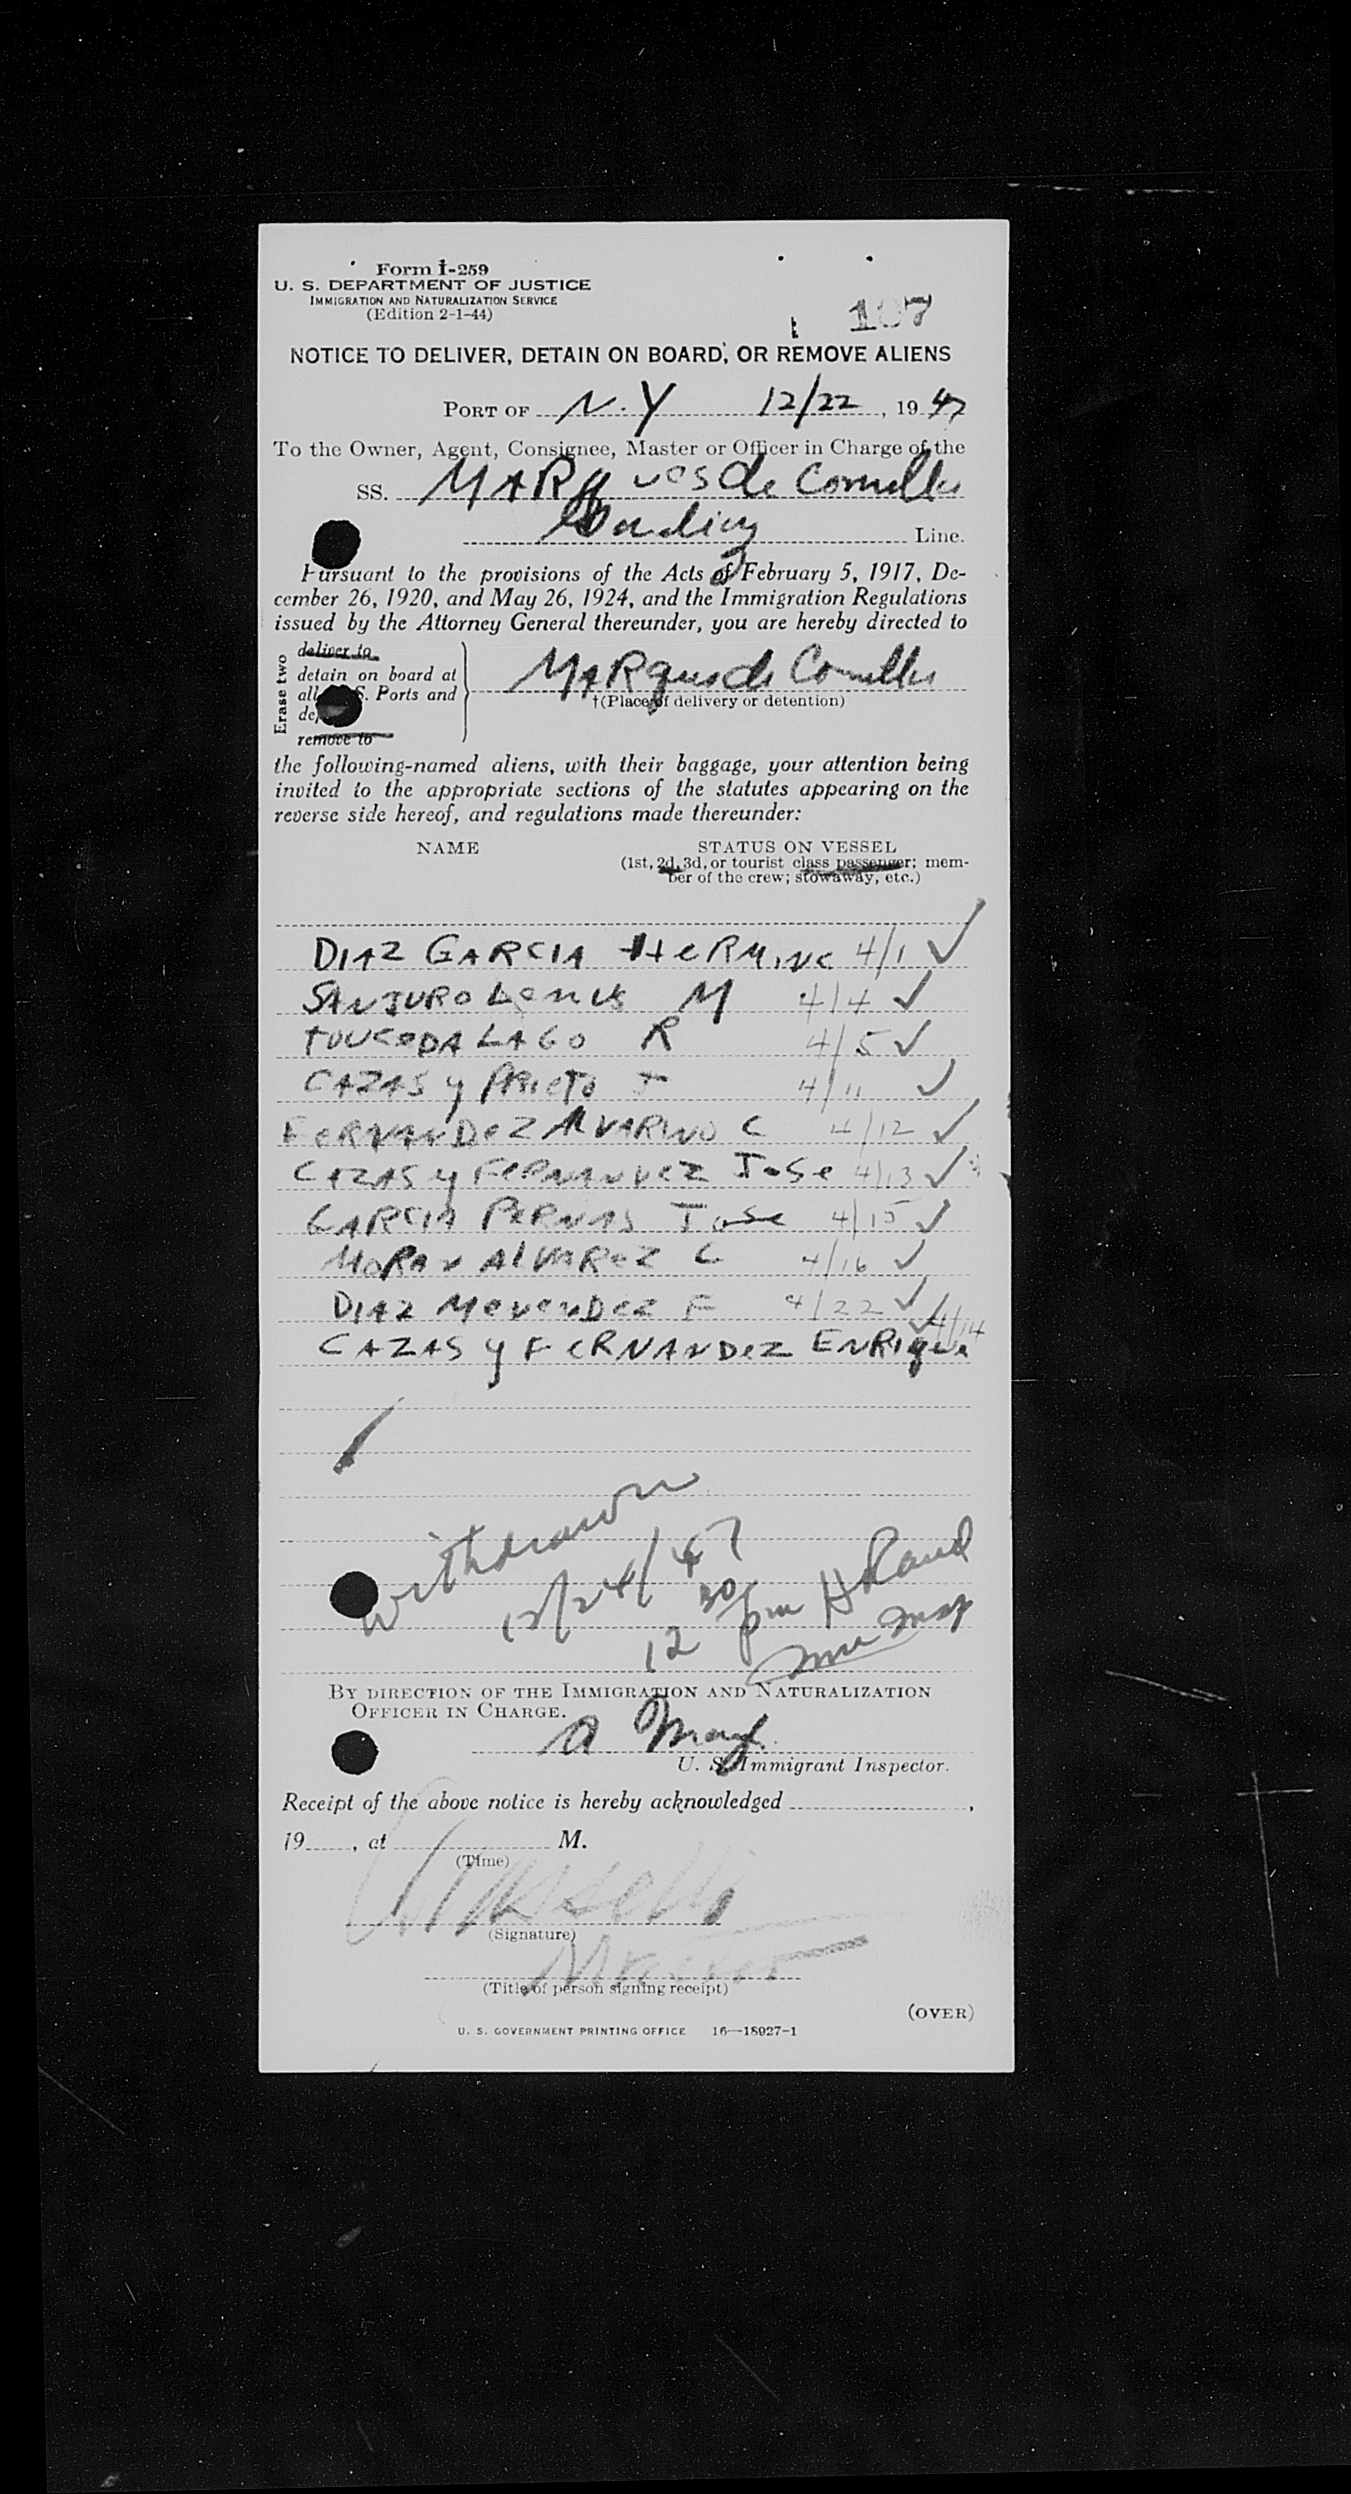 Form I-259
U. S. DEPARTMENT OF JUSTICE
IMMIGRATION AND NATURALIZATION SERVICE
(Edition 2-1-44)
107
NOTICE TO DELIVER, DETAIN ON BOARD, OR REMOVE ALIENS
PORT OF N.Y 12/22, 1947
To the Owner, Agent, Consignee, Master or Officer in Charge of the
SS. MARQues de Comillas
Line.
Pursuant to the provisions of the Acts of February 5, 1917, De-
cember 26, 1920, and May 26, 1924, and the Immigration Regulations
issued by the Attorney General thereunder, you are hereby directed to
Erase two
deliver to
detain on board at
all S. Ports and
de
remove to
MARques de Comillas
†(Place of delivery or detention)
the following-named aliens, with their baggage, your attention being
invited to the appropriate sections of the statutes appearing on the
reverse side hereof, and regulations made thereunder:
NAME STATUS ON VESSEL
(1st, 2d, 3d, or tourist class passenger; mem-
ber of the crew; stowaway, etc.)
DIAZ GARCIA HERMINE 4/1 ✓
SANJURO M 4/4 ✓
TOUCEDA LAGO R 4/5 ✓
CAZAS y PRIETO J 4/11 ✓
FERNANDEZ ALVARINO C 4/12 ✓
CAZAS y FERNANDEZ JoSe 4/13 ✓
GARCIA PERNAS Jose 4/15 ✓
MORAN ALVAREZ C 4/16 ✓
DIAZ MeNeNDez F 4/22 ✓
CAZAS y FeRNANDez ENRique ✓ 4/14
withdrawn
12/24/47
12 30 pm
BY DIRECTION OF THE IMMIGRATION AND NATURALIZATION
OFFICER IN CHARGE.
A May
U. S. Immigrant Inspector.
Receipt of the above notice is hereby acknowledged ,
19 , at M.
(Time)
(Signature)
(Title of person signing receipt)
(OVER)
U. S. GOVERNMENT PRINTING OFFICE 16—18927-1